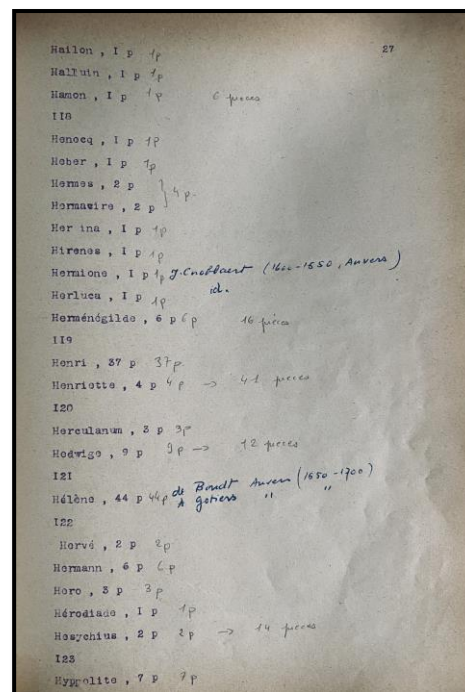 27
Hailon , I p 1p
Halluin , I p 1p
Hamon , I p 1p 6 pieces
II8
Henocq , I p 1p
Heber , I p 1p
Hermes , 2 p
Hermawire , 2 p } 4 p.
Her ina , I p 1p
Hirenes , I p 1p
Hermione , I p 1p J. Cnobbaert (1600-1550, Anvers)
Herluca , I p 1p id.
Herménégilde , 6 p 6p 16 pièces
II9
Henri , 37 p 37p.
Henriette , 4 p 4p → 41 pieces
I20
Herculanum , 3 p 3p
Hedwige , 9 p 9p → 12 pieces
I21
Hélène , 44 p 44p de Boudt Anvers (1650-1700)
A " "
I22
Hervé , 2 p 2p
Hermann , 6 p 6p
Hero , 3 p 3p
Hérodiade , I p 1p
Hesychius , 2 p 2p → 14 pieces
I23
Hyppolite , 7 p 7p